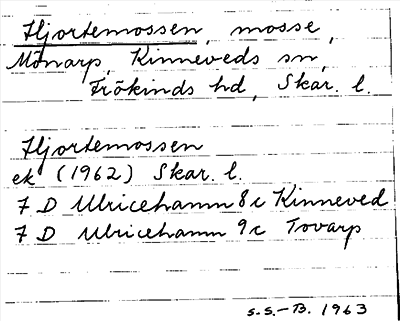 Hjortemossen, mosse,
Mönarp, Kinneveds sn,
Frökinds hd, Skar. l.
Hjortemossen
ek (1962) Skar. l.
7 D Ulricehamn 8c Kinneved
7 D Ulricehamn 9c Tovarp
S.S.–B. 1963